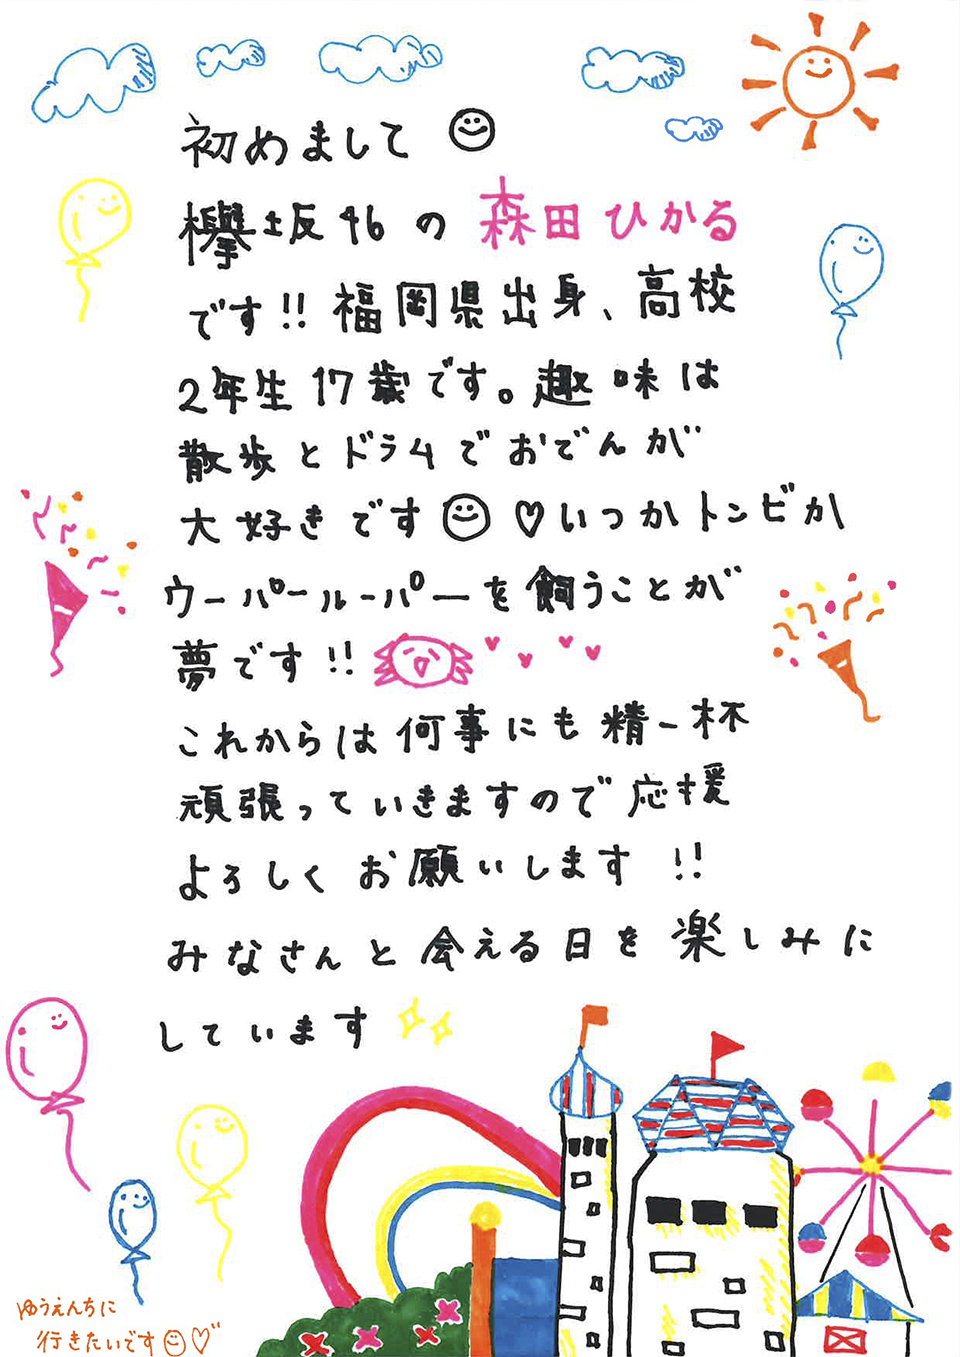 初めまして
欅坂46の森田ひかる
です!!福岡県出身、高校
2年生17歳です。趣味は
散歩とドラムでおでんが
大好きです♡いつかトンビか
ウーパールーパーを飼うことが
夢です!!
これからは何事にも精一杯
頑張っていきますので応援
よろしくお願いします!!
みなさんと会える日を楽しみに
しています
ゆうえんちに
行きたいです♡